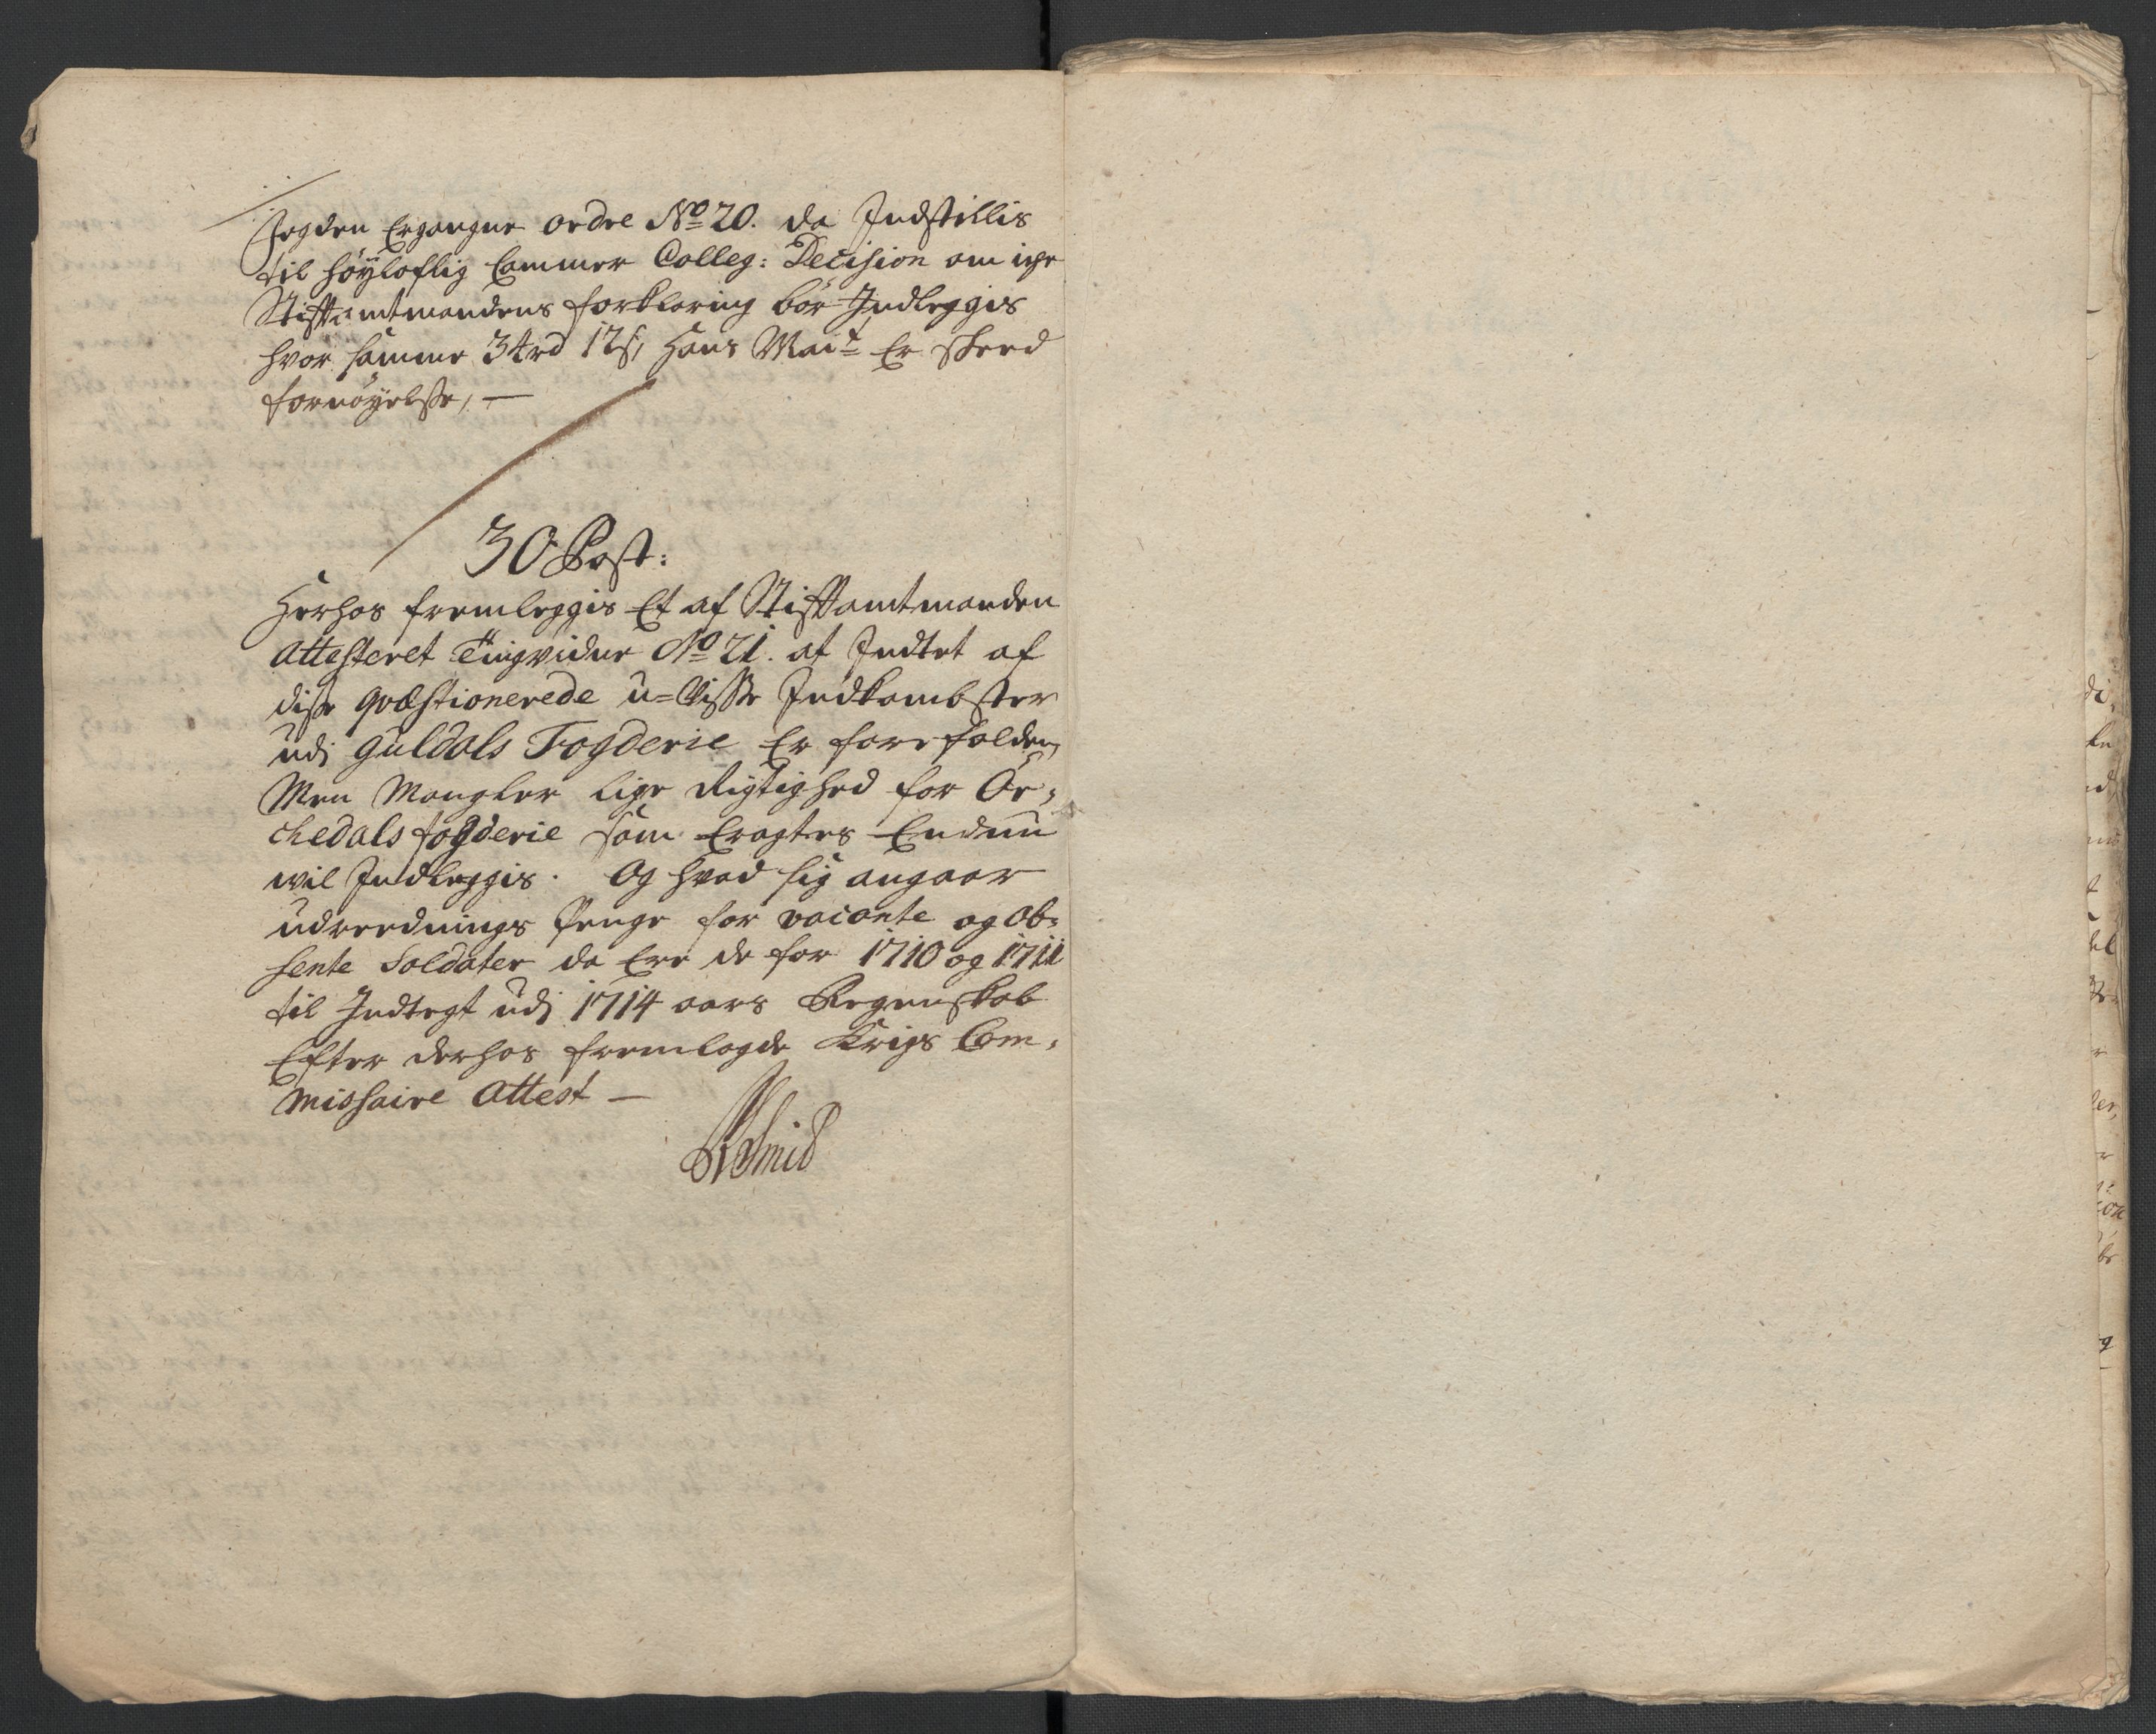 Fogden Ergangne ordre No 20. da Indstillis
til höyloflig Cammer Colleg: Decision om icke
Stiftamtmandens forklaring bör Indleggis
hvor samme 34rd 12s, Hans Mait Er skeed
fornöyelse, —
30 Post:
Herhos fremleggis Et af Stiftamtmanden
Attesteret Tingvidne No 21. at Indtet af
disse qvæstionerede u-Visse Indkombster
udj Guldals Fogderie Er forefalden,
Men Mangler lige Rigtighed for Or,
chedals fogderie som Eragtes Endnu
wil Indleggis. Og hvad sig angaar
udreednings Penge for vacante og Ab=
sente Soldater da Ere de for 1710 og 1711
til Indtegt udj 1714 aars Regenskab
Efter derhos fremlagde Krigs Com,
missaire Attest —
Smid